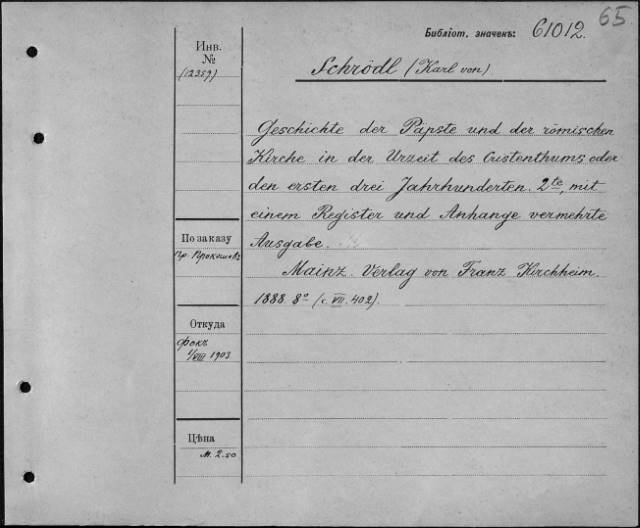 65
Библіот. значекъ: 61012.
Инв.
№
(12359)
Schrödl (Karl von)
Geschichte der Päpste und der römischen
Kirche in der Urzeit des Cristenthums, oder
den ersten drei Jahrhunderten. 2te, mit
einem Register und Anhange vermehrte
Ausgabe.
Mainz. Verlag von Franz Kirchheim.
1888. 8° (c. VII. 402).
По заказу
Пр. Прокошева
Откуда
Фокъ
1/VIII 1903
Цѣна
M. 2.50